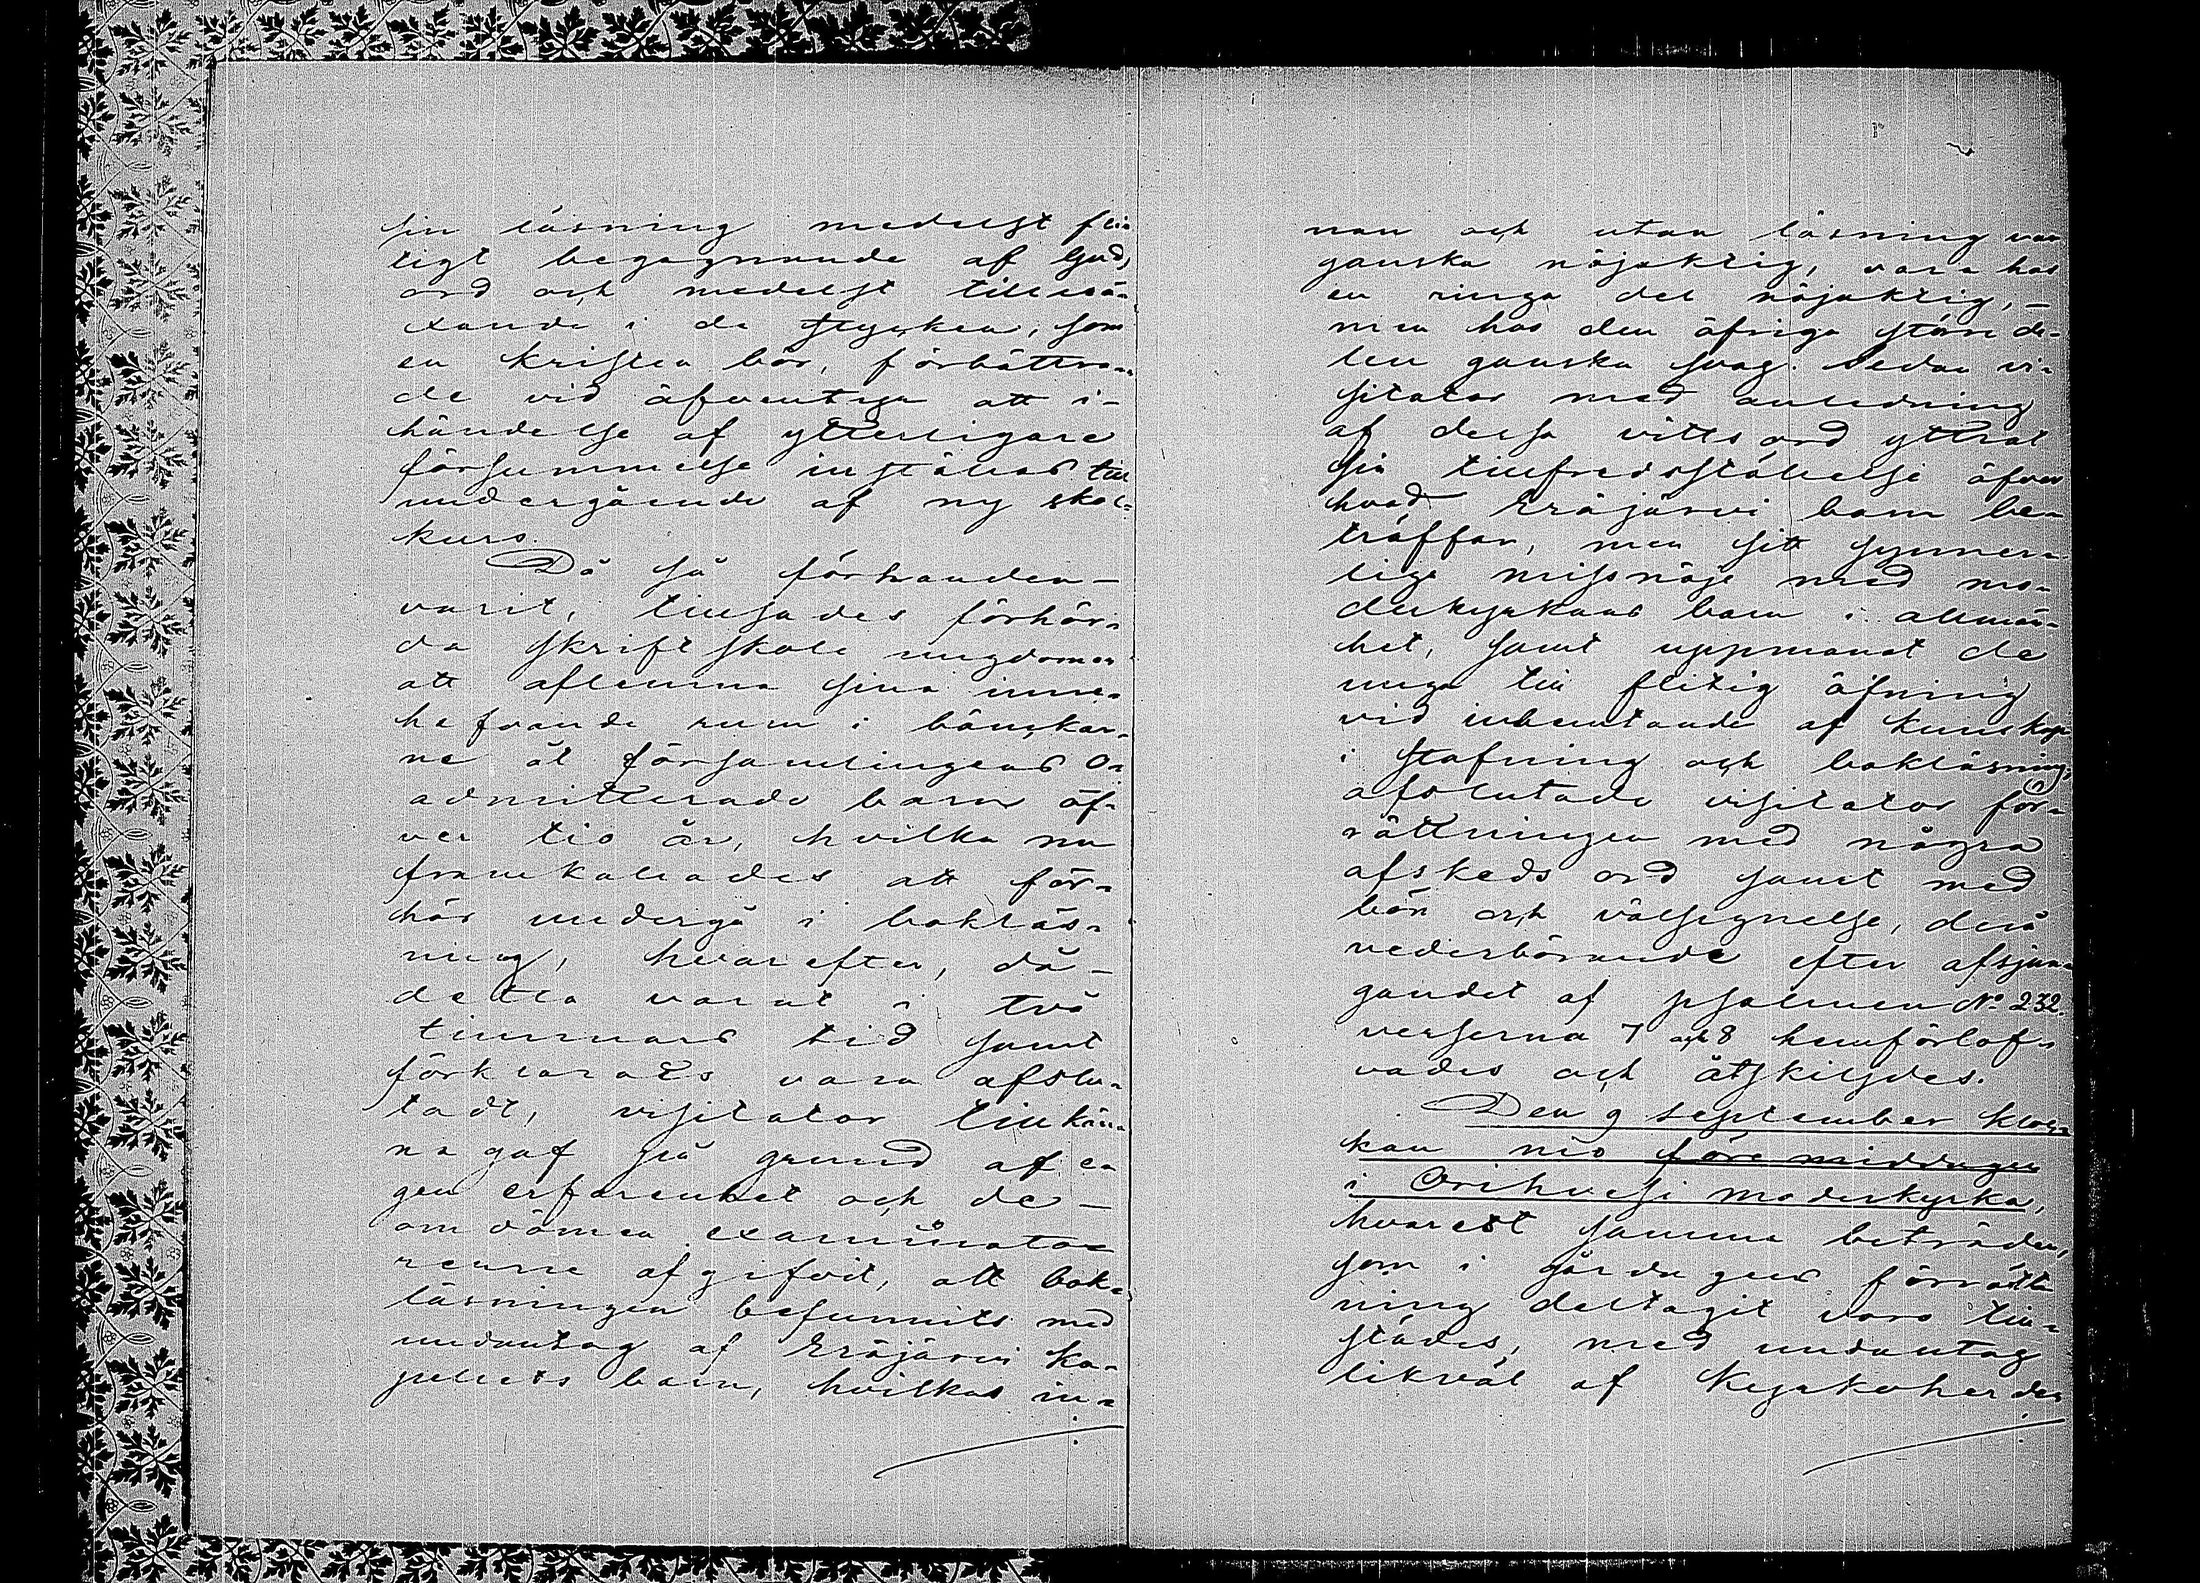 sin läsning medelst fli-
tigt begagnande af Guds
ord och medelst tillvä-
xande i de stycken, som
en kristen bör, förbättra-
de vid äfventyr att i-
händelse af ytterligare
försummelse inställas till
undergående af ny skol-
kurs.
Då så förhanden-
varit, tillsades förhör-
da skriftskole ungdomen
att aflemna sina inne-
hafvande rum i bänkar-
ne åt församlingens o-
admitterade barn öf-
ver tio år, hvilka nu
framkallades att för-
hör undergå i bokläs-
ning, hvarefter, då-
detta varat i två
timmars tid samt
förklarats vara afslu-
tadt, visitator tillkän-
na gaf på grund af e
gen erfarenhet och de-
omdömen examinato
rerne afgifvit, att bok-
läsningen befunnits med
undantag af Eräjärvi ka-
pellets barn, hvilkas in-
nan och utan läsning var
ganska nöjaktig, vara hos
en ringa del nöjaktig, -
men hos den öfriga större de-
len ganska svag. Sedan vi-
sitator med anledning
af dessa vittsord yttrat
sin tillfredsställelse öfver
hvad Eräjärvi barn be-
träffar, men sitt synner-
liga missnöje med mo-
derkyrkans barn i allmän-
het, samt uppmanat de
unga till flitig öfning
vid inhemtande af kunskap
i stafning och bokläsning,
afslutade visitator för-
rättningen med några
afskeds ord samt med
bön och välsignelse, då
vederbörande efter afsjun-
gandet af psalmen No 232.
verserna 7 och 8 hemförlof-
vades och åtskiljdes.
Den 9 september kloc-
kan nio före middagen
i Orihvesi moderkyrka,
hvarest samma beträden,
som i gårdagens förrätt
ning deltagit voro till-
städes, med undantag
likväl af Kyrkoherden